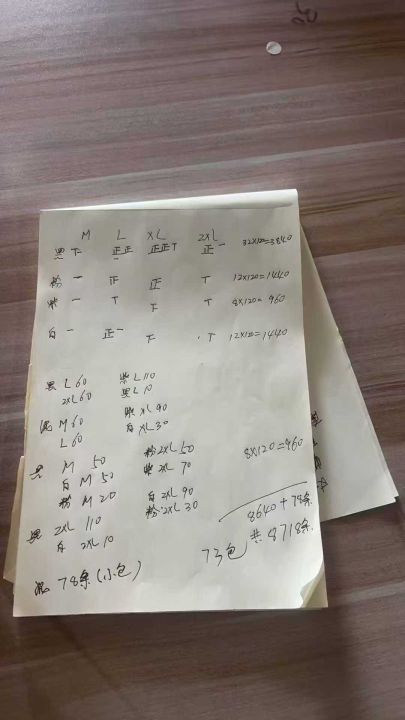 M L XL 2XL
黑 下 正正一 正正T 正一 32X120=3840
粉 一 正 正 T 12X120=1440
紫 一 T 下 T 8X120=960
白 一 正一 下 T 12X120=1440
黑 L 60 紫 L 110
2XL 60 黑 L 10
M 60 紫 XL 90
L 60 白 XL 30
M 50 粉 2XL 50 8X120=960
白 M 50 紫 2XL 70
粉 M 20 白 2XL 90
2XL 110 粉 2XL 30 8640+78条
白 2XL 10 73包 共8718条
混 78条(小包)